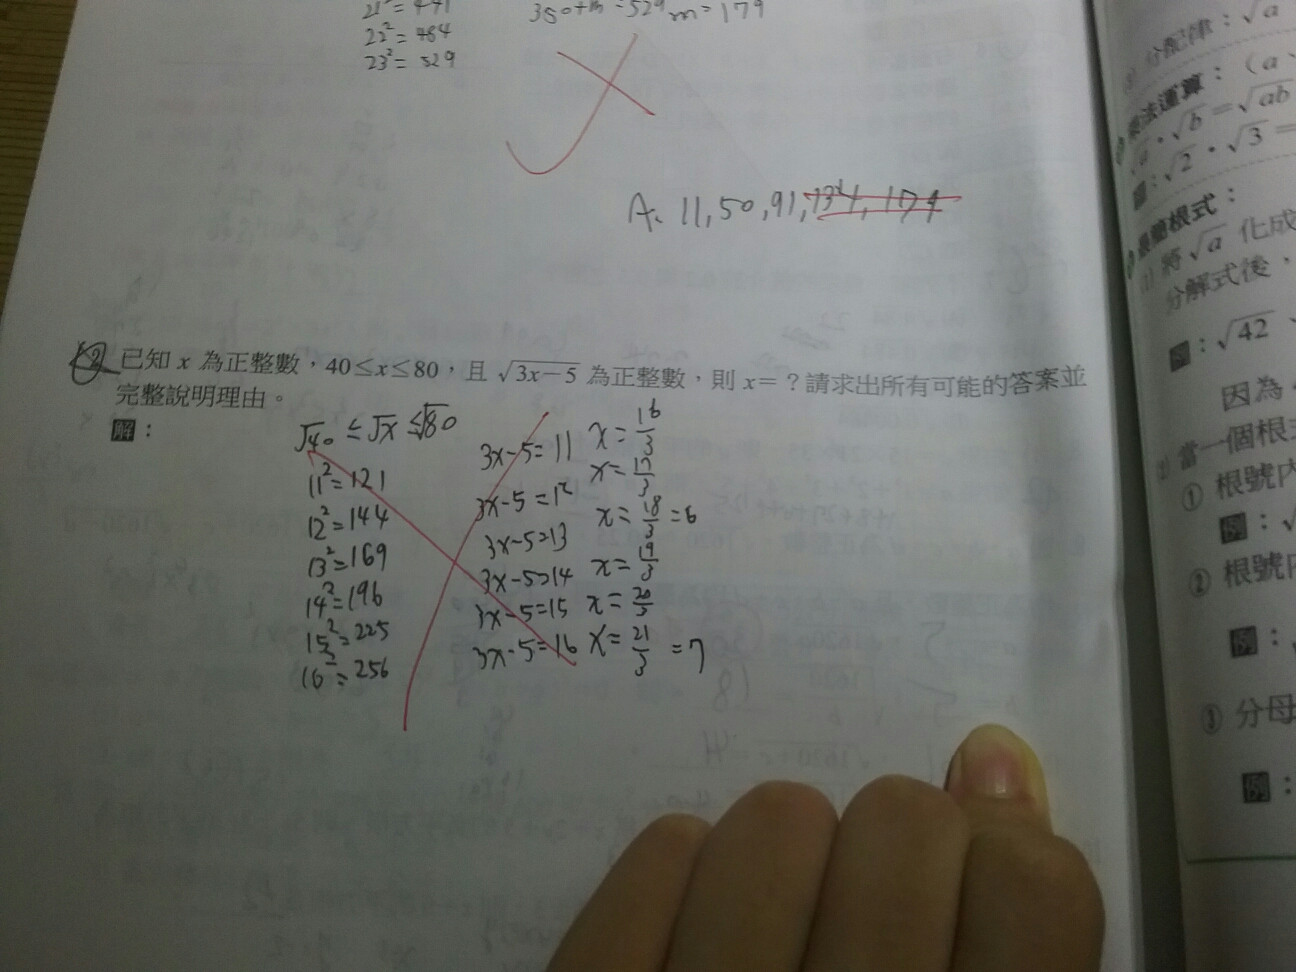 21² = 441
22² = 484
23² = 529
350+m = 529 m = 179
A. 11, 50, 91, 134, 179
2 已知 x 為正整數，40≤x≤80，且 √3x−5 為正整數，則 x=？請求出所有可能的答案並
完整說明理由。
解：
√40 ≤ √x ≤ √80
11² = 121
12² = 144
13² = 169
14² = 196
15² = 225
16² = 256
3x-5 = 11 x = 16/3
3x-5 = 12 x = 17/3
3x-5 = 13 x = 18/3 = 6
3x-5 = 14 x = 19/3
3x-5 = 15 x = 20/3
3x-5 = 16 x = 21/3 = 7
分配律：√a
乘法運算：(a
√a · √b = √ab
例：√2 · √3 =
最簡根式：
(1) 將 √a 化成
分解式後，
例：√42
因為
(2) 當一個根式
① 根號內
例：√
② 根號內
例：
③ 分母
例：